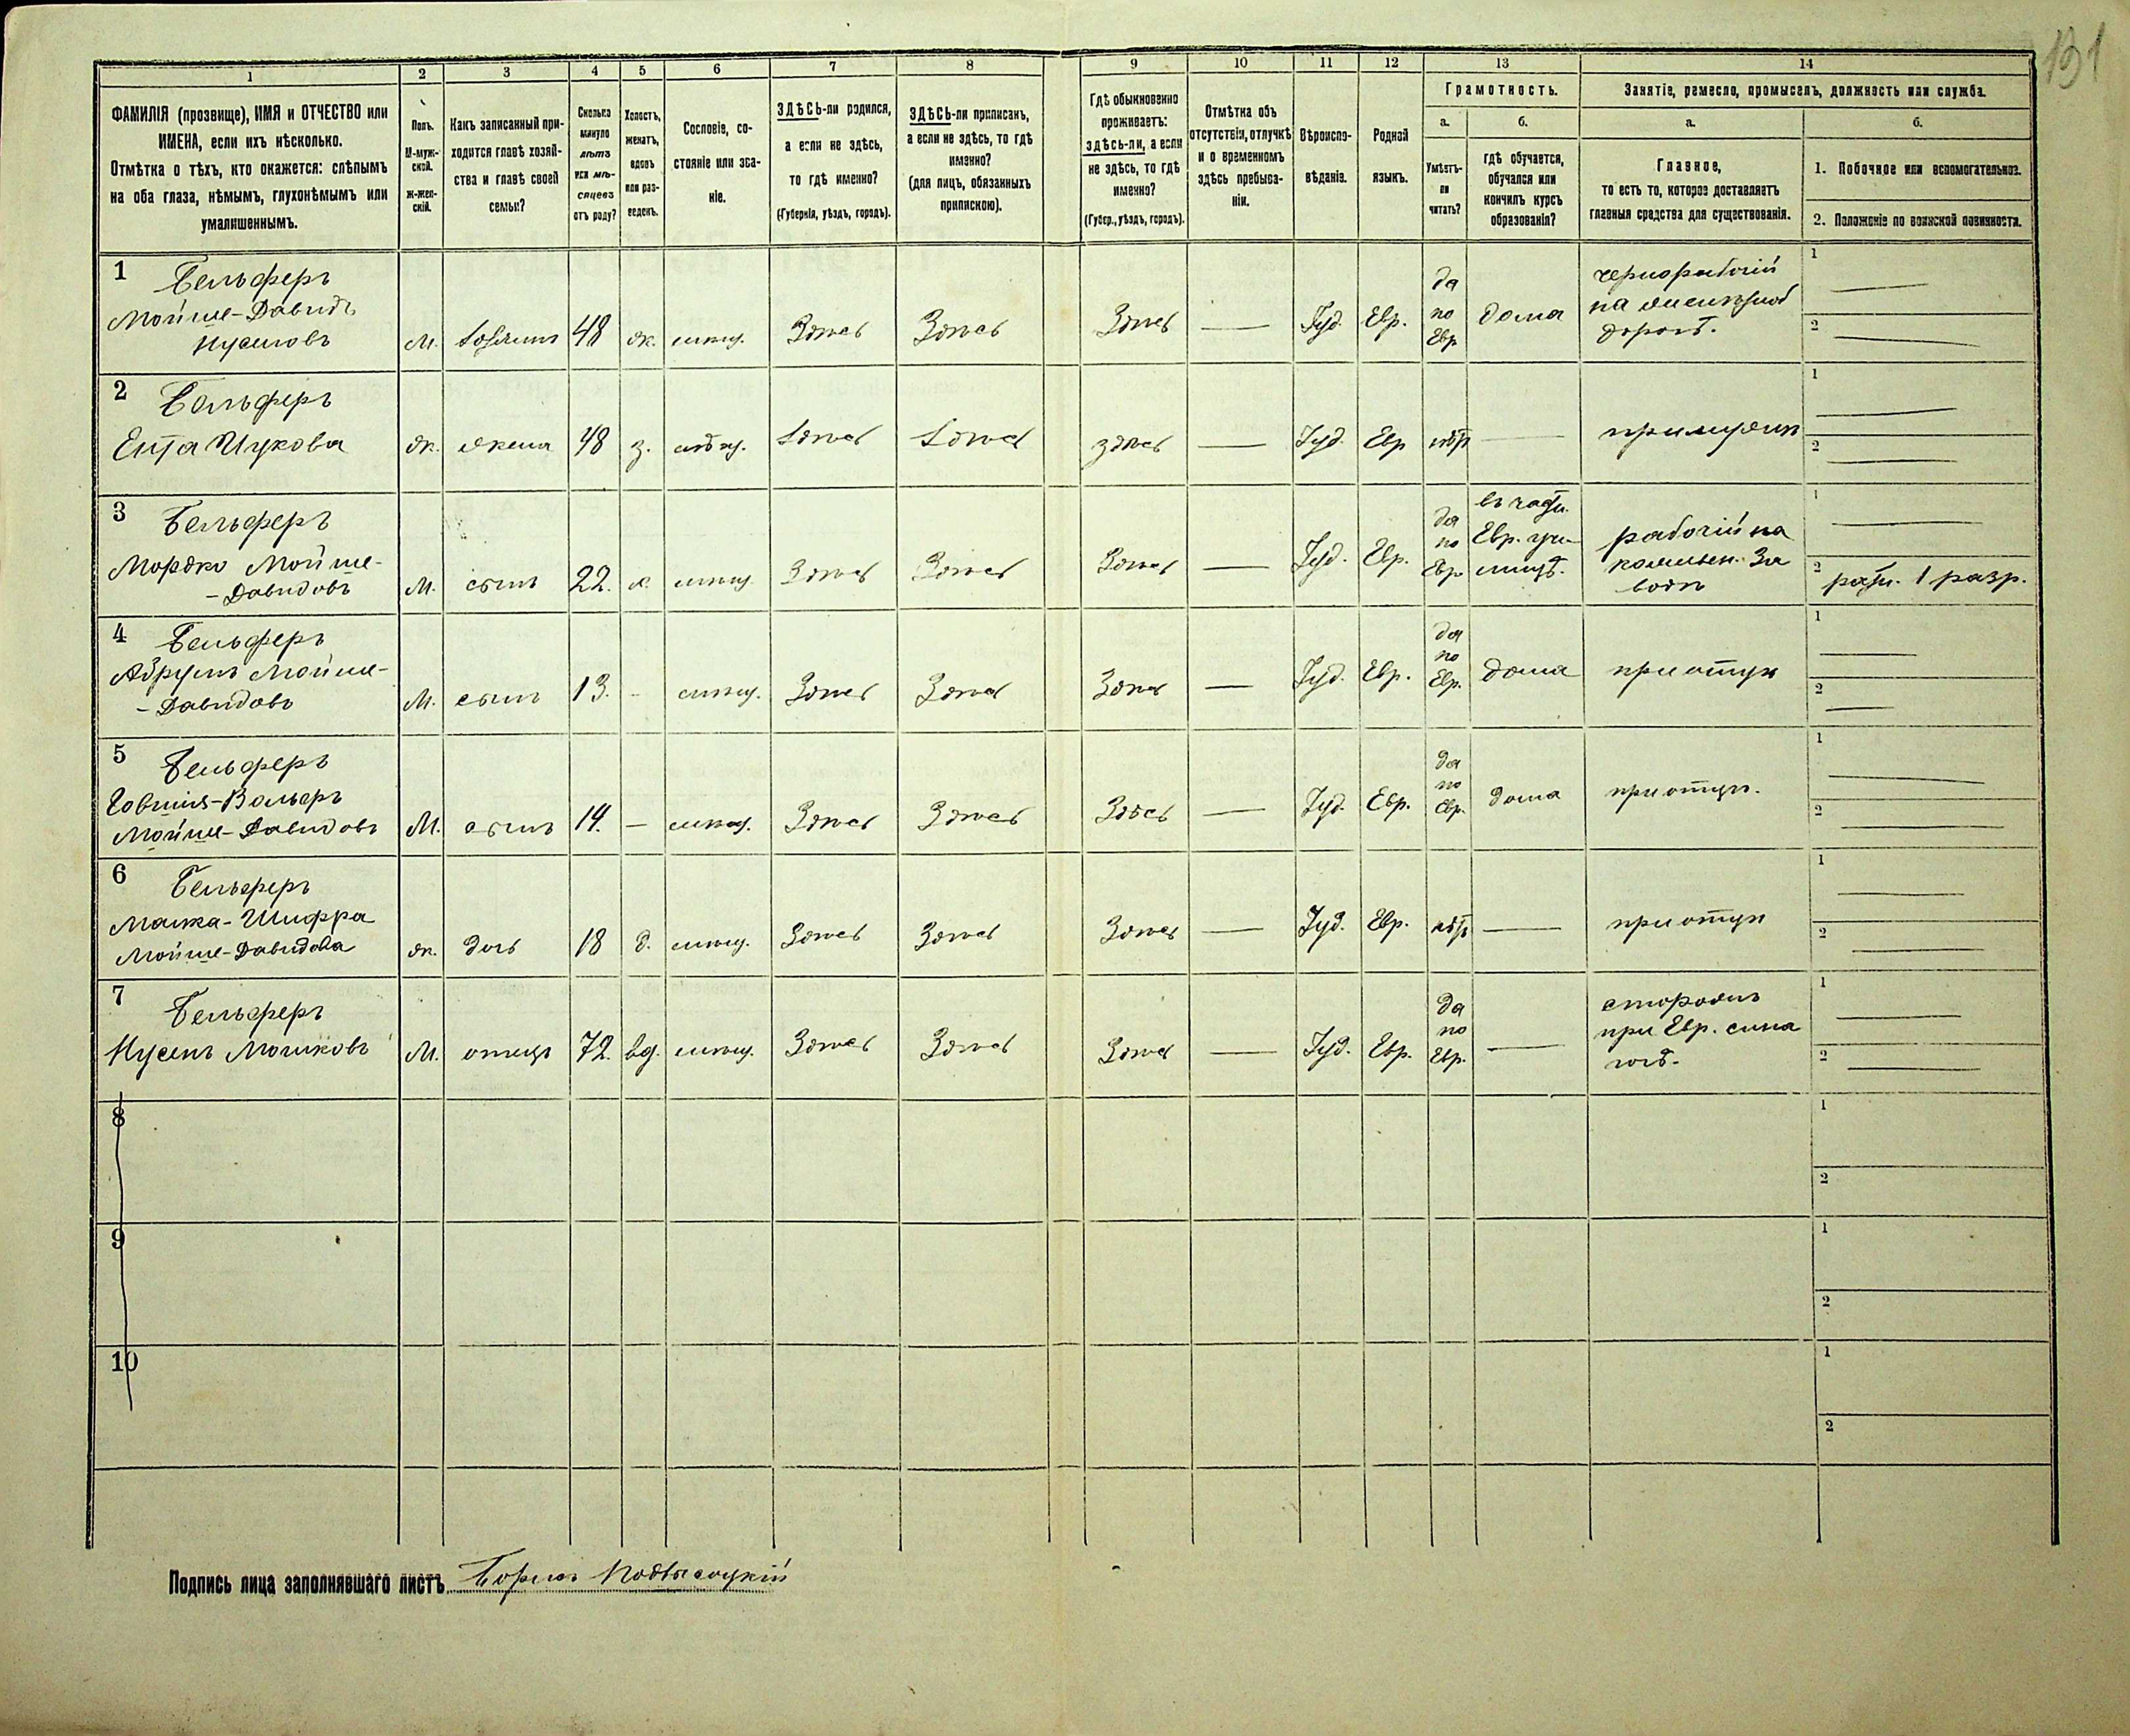 131
1 2 3 4 5 6 7 8 9 10 11 12 13 14
ФАМИЛІЯ (прозвище), ИМЯ и ОТЧЕСТВО или
ИМЕНА, если ихъ нѣсколько.
Отмѣтка о тѣхъ, кто окажется: слѣпымъ
на оба глаза, нѣмымъ, глухонѣмымъ или
умалишеннымъ.
Полъ.
М-муж-
ской.
Ж-жен-
скій.
Какъ записанный при-
ходится главѣ хозяй-
ства и главѣ своей
семьи?
Сколько
минуло
лѣтъ
или мѣ-
сяцевъ
отъ роду?
Холостъ,
женатъ,
вдовъ
или раз-
веденъ.
Сословіе, со-
стояніе или зва-
ніе.
ЗДѢСЬ-ли родился,
а если не здѣсь,
то гдѣ именно?
(Губернія, уѣздъ, городъ).
ЗДѢСЬ-ли приписанъ,
а если не здѣсь, то гдѣ
именно?
(для лицъ, обязанныхъ
припискою).
Гдѣ обыкновенно
проживаетъ:
здѣсь-ли, а если
не здѣсь, то гдѣ
именно?
(Губер., уѣздъ, городъ).
Отмѣтка объ
отсутствіи, отлучкѣ
и о временномъ
здѣсь пребыва-
ніи.
Вѣроиспо-
вѣданіе.
Родной
языкъ.
Грамотность.
а.
Умѣетъ-
ли
читать?
б.
гдѣ обучается,
обучался или
кончилъ курсъ
образованія?
Занятіе, ремесло, промыселъ, должность или служба.
а.
Главное,
то есть то, которое доставляетъ
главныя средства для существованія.
б.
1. Побочное или вспомогательное.
2. Положеніе по воинской повинности.
1 Бельферъ
Мойше-Давидъ
Нусиновъ
М. хозяинъ 48 ж. мѣщ. Здѣсь Здѣсь Здѣсь — Іуд. Евр. да по Евр дома
чернорабочій
на желѣзной
дорогѣ.
1 —
2 —
2 Бельферъ
Ента Ицкова
ж. жена 48 з. мѣщ. Здѣсь Здѣсь здѣсь — Іуд. Евр нѣтъ —
при мужѣ
1 —
2 —
3 Бельферъ
Мордко Мойше-
-Давидовъ
М. сынъ 22. х. мѣщ. Здѣсь Здѣсь Здѣсь — Іуд. Евр. да по Евр
въ частн.
Евр. учи-
лищѣ.
рабочій на
За
водѣ
1 —
2 ратн. 1 разр.
4 Бельферъ
Абрумъ Мойше-
-Давидовъ
М. сынъ 13. - мѣщ. Здѣсь Здѣсь Здѣсь — Іуд. Евр. да по Евр. дома
при отцѣ
1 —
2 —
5 Бельферъ
Мойше-Давидовъ
М. сынъ 14. — мѣщ. Здѣсь Здѣсь Здѣсь — Іуд. Евр. да по Евр. дома
при отцѣ.
1 —
2 —
6 Бельферъ
Малка-Шифра
Мойше-Давидова
ж. дочь 18 д. мѣщ. Здѣсь Здѣсь Здѣсь — Іуд. Евр. нѣтъ —
при отцѣ
1 —
2 —
7 Бельферъ
Нусенъ Мошковъ
М. отецъ 72. вд. мѣщ. Здѣсь Здѣсь Здѣсь — Іуд. Евр. да по Евр. —
сторожъ
при Евр. сина
гогѣ.
1 —
2 —
8
1
2
9
1
2
10
1
2
Подпись лица заполнявшаго листъ Борисъ Подвысоцкій